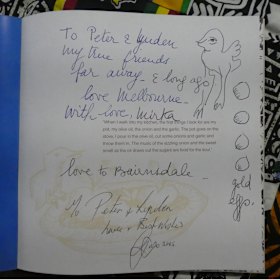 To Peter &
my true friends
far away - & long ago
love Melbourne -
with love, mirka
"When I walk into my kitchen, the first things I look for are my
pot, the olive oil, the onion and the garlic. The pot goes on the
stove, I pour in the olive oil, cut some onions and garlic and
throw them in. The music of the sizzling onion and the sweet
smell as the oil draws out the sugars are food for the soul."
love to Bairnsdale -
gold
eggs.
To Peter &
Love & Best Wishes